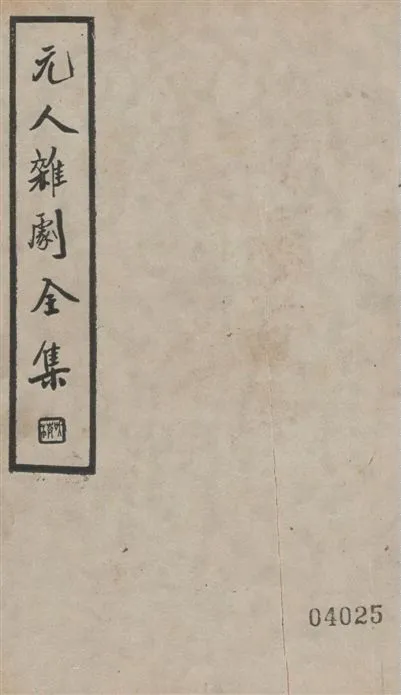 元人雜劇全集
04025